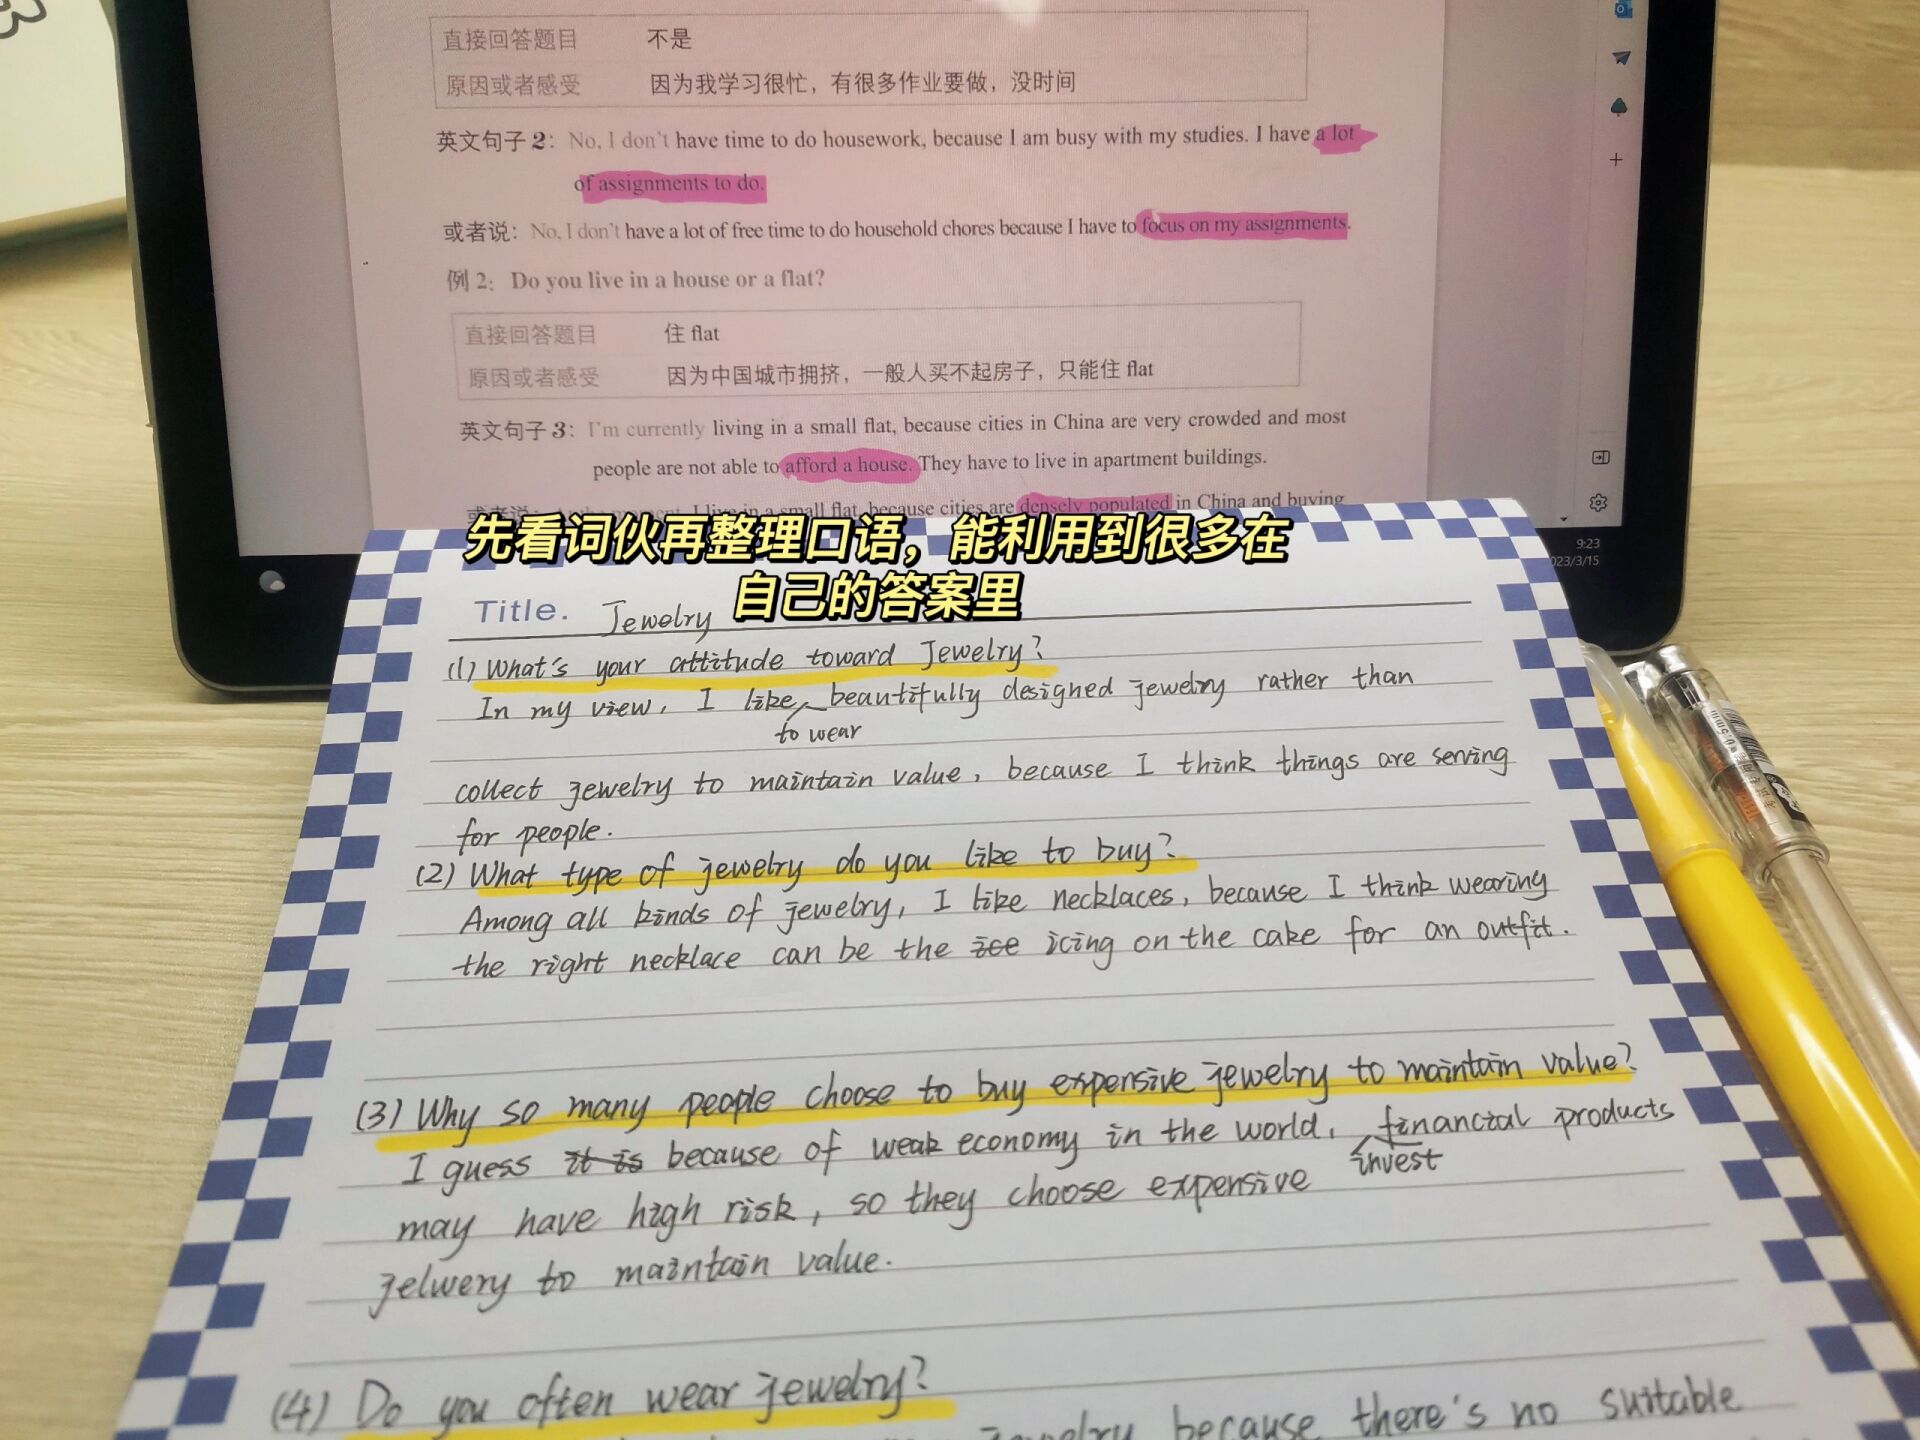 直接回答题目 不是
原因或者感受 因为我学习很忙，有很多作业要做，没时间
英文句子2：No, I don't have time to do housework, because I am busy with my studies. I have a lot
of assignments to do.
或者说：No, I don't have a lot of free time to do household chores because I have to focus on my assignments.
例2：Do you live in a house or a flat?
直接回答题目 住 flat
原因或者感受 因为中国城市拥挤，一般人买不起房子，只能住 flat
英文句子3：I'm currently living in a small flat, because cities in China are very crowded and most
people are not able to afford a house. They have to live in apartment buildings.
或者说： moment, I live in a small flat, because cities are densely populated in China and buying
9:23
023/3/15
先看词伙再整理口语，能利用到很多在
自己的答案里
Title. Jewelry
(1) What's your attitude toward Jewelry?
In my view, I like beautifully designed jewelry rather than
to wear
collect jewelry to maintain value, because I think things are serving
for people.
(2) What type of jewelry do you like to buy?
Among all kinds of jewelry, I like necklaces, because I think wearing
the right necklace can be the ice icing on the cake for an outfit.
(3) Why so many people choose to buy expensive jewelry to maintain value?
I guess it is because of weak economy in the world, financial products
invest
may have high risk, so they choose expensive
jelwery to maintain value.
(4) Do you often wear jewelry?
jewelry because there's no suitable